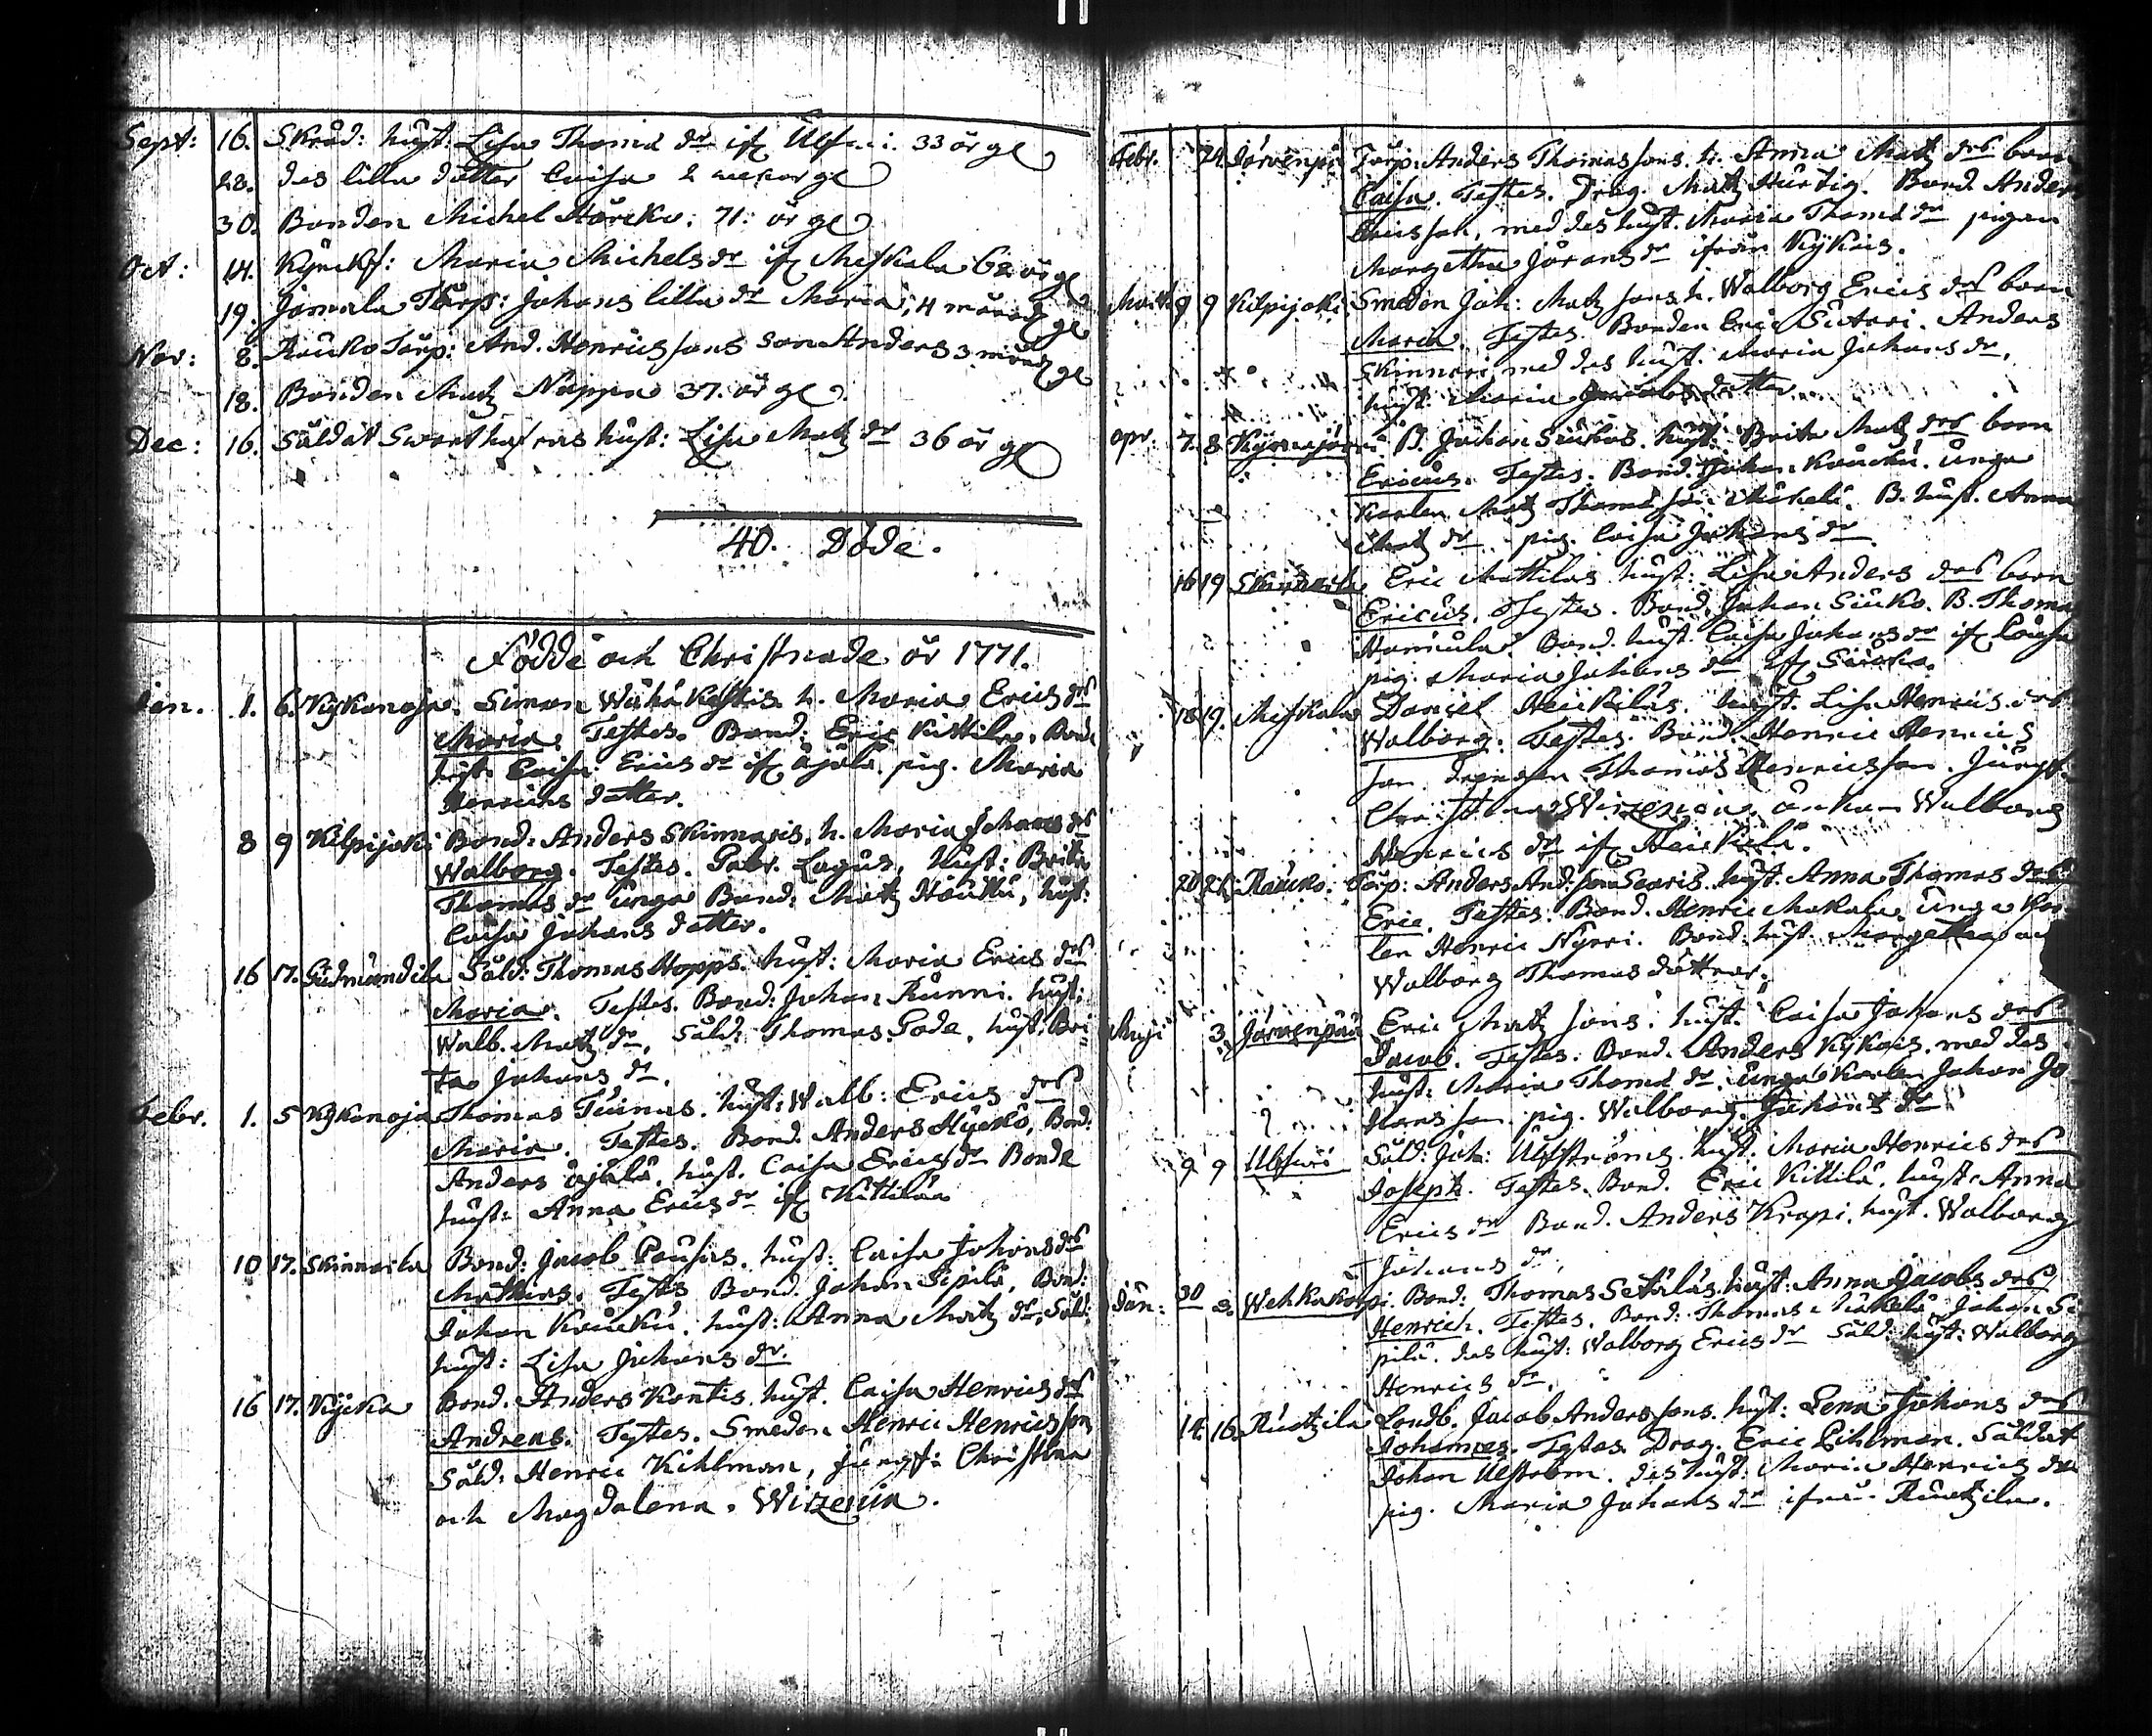 Sept: 16. Skräd: hust: Lisa Thomæ dr if Ulfsu: 33 år gl
28. des lilla dotter Caisa 2 weckor gl
30. Bonden Michel Härcko: 71: år gl
Oct: 14. Maria Michelsdr if Meskala 62 år gl
19. Jamala Torp: Johans lilla dr Maria, 4 månad gl
Nov: 8. Rauko Torp: And. Henrics sons son Anders 3 månad gl
18. Bonden Matz Nappa 37. år gl
Dec: 16. Säldat Swarthafras hust: Lisa Matz dr 36 år gl
40. Döde.
Födde och Christnade år 1771.
Jan. 1. 6. Kykänoja. Simon Wähä Kestis h. Maria Erics drs
Maria. Testes. Bond: Eric Kittilä. Bond
hust. Caisa Erics dr if Äjälä. pig. Maria
Henrichs dotter.
8 9 Kilpijoki Bond: Anders Skinnaris. h. Maria Johans drs
Walborg. Testes. Gabr. Lagus, hust: Brita
Thomas dr unga Bond: Matz Haukku, hust:
Caisa Johans dotter.
16 17. Gudmundila Säld: Thomas Hopps. hust: Maria Erics drs
Maria. Testes. Bond: Johan Runni. hust:
Walb. Matz dr. Säld: Thomas Gode. hust: Bri
ta Johans dr.
Febr. 1. 5 Kykänoja Thomas Tuunas. hust: Walb: Erics drs
Maria. Testes. Bond. Anders Hyckö, Bond:
Anders Äjälä. hust. Caisa Erics dr Bonde
hust: Anna Erics dr if Kittilä
10 17. Skinnarla Bond: Jacob Pousus. hust: Caisa Johans drs
Mathias. Testes Bond. Johan Sipilä, Bond:
Johan Kaucku. hust: Anna Matz dr. Säld:
hust: Lisa Johans dr.
16 17. Kyckä Bond. Anders Kontis. hust. Caisa Henrics drs
Andreas. Testes. Smeden Henric Henricsson
Säld: Henric Kihlman, Jungf: Christina
och Magdalena. Wirzenia.
Febr. 24. Järvenpä Torp: Anders Thomas sons. h. Anna Matz drs barn
Caisa. Testes. Drag. Matz Hurtig. Bond. Anders
Ericsson, med des hust. Maria Thomæ dr pigan
Margetha Jörans dr ifrån Kykäis.
Marti 9 9 Kilpijoki Smeden Joh: Matz sons h. Walborg Erics drs barn
Maria. Testes. Bonden Eric Sutari. Anders
Skinnari med des hust. Maria Johans dr.
hust. Maria Jacobs dotter.
apr. 7. 8 B. Johan hust. Brita Matz drs barn
Ericus. Testes. Bond. Johan Kaucku. unga
Karlen Matz Thomæ son Mickelä. B. hust. Anna
Matz dr. pig. Caisa Johans dr
16 19 Skinnarla Eric Mattilas hust: Lisa Anders drs barn
Ericus. Testes. Bond. Johan Siuko. B. Thoma
Bond. hust. Caisa Johans dr if Pousu
pig. Maria Johans dr if Siucko.
18 19. Meskala Daniel Heickiläs. hust. Lisa Henrics drs
Walborg. Testes. Bond. Henric Henrics
son drengen Thomas Henricsson. Jungf.
Christina Wirzenia. änkan Walborg
Henrics dr if Heickilä.
20 21. Raucko. Torp: Anders And: sons Searis. hust. Anna Thomas drs
Eric. Testes. Bond. Henric Makala. unga Kar
len Henric Nyrri. Bond: hust. Margetha
Walborg Thomas döttrar.
Maji 3. Järvenpää Eric Matz sons. hust. Caisa Johans drs
Jacob. Testes. Bond. Anders Kykäis. med des
hust: Maria Thomæ dr. unga Karlen Johan Jo
hans son. pig. Walborg Johans dr
9 9 Ulfsuo Säld: Joh: Ulfströms. hust. Maria Henrics drs
Joseph. Testes. Bond. Eric Kittilä. hust. Anna
Erics dr Bond. Anders Krapi. hust. Walborg
Johans dr.
Jun: 30 Wehkakorpi Bond: Thomas Setäläs. hust: Anna Jacobs drs
Henrich. Testes. Bond: Thomas Johan Si
pilä. des hust: Walborg Erics dr Säld: hust: Walborg
Henrics dr.
14. 16. Ruotzila Landb. Jacob Anders sons. hust: Lena Johans drs
Johannes. Testes Drag. Eric Pihlman. Säldat
Johan Ulfström. des hust. Maria Henrics dr
pig. Maria Johans dr ifrån Ruotzila.